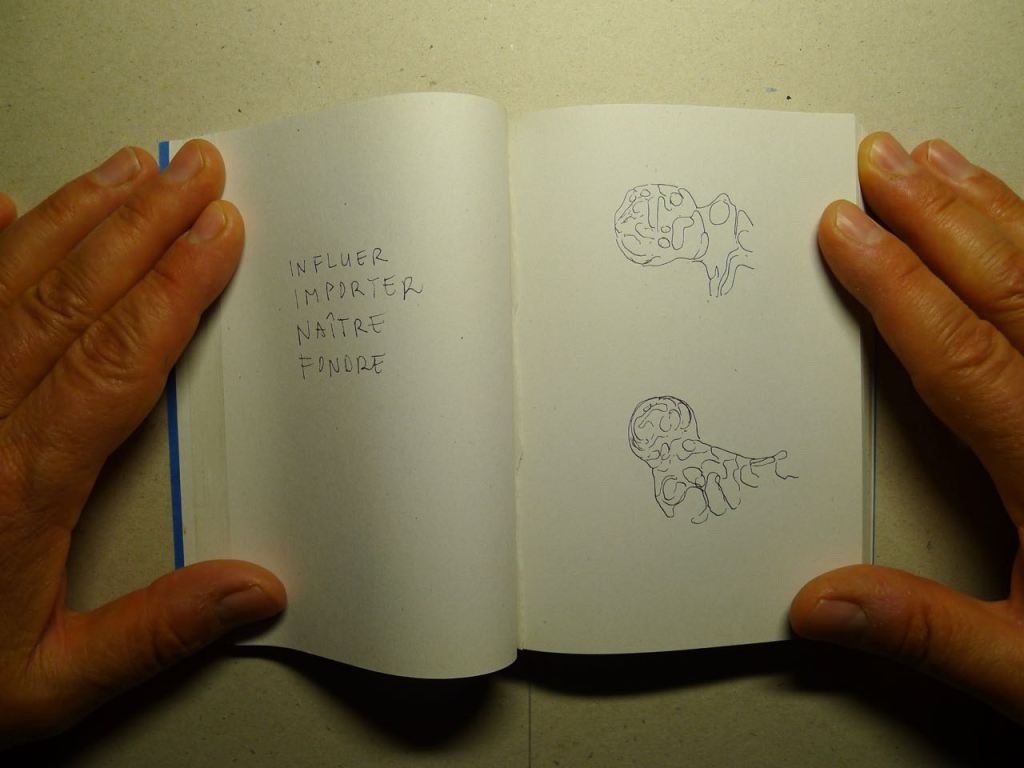 INFLUER
IMPORTER
NAÎTRE
FONDRE